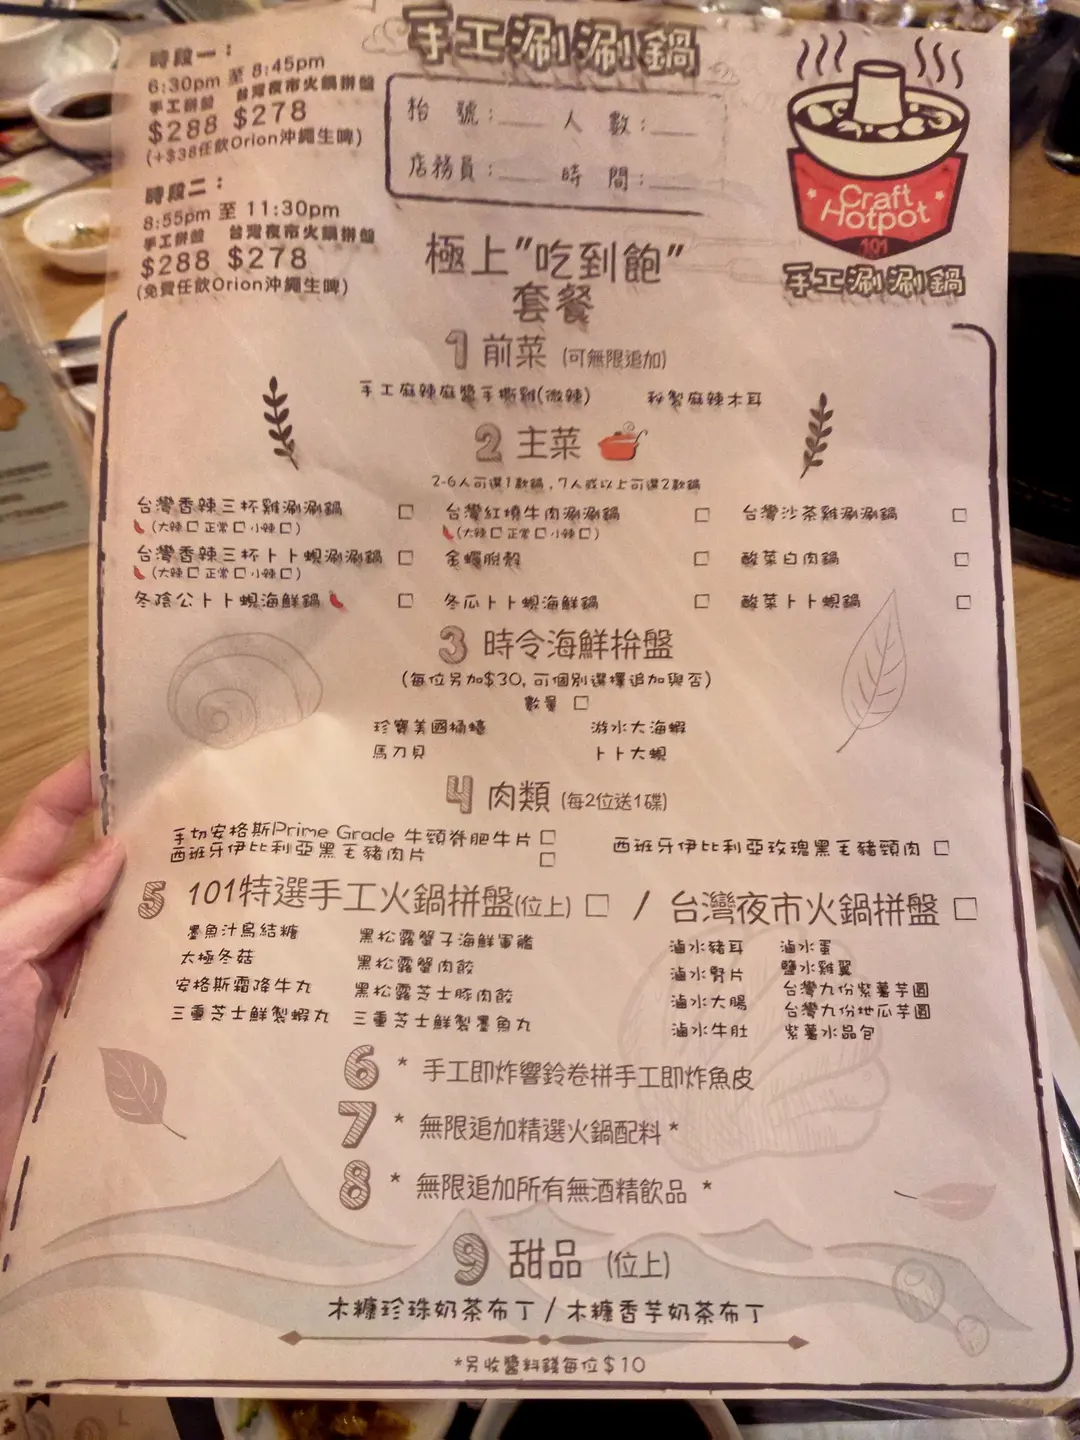 手工涮涮鍋
時段一：
6:30pm 至 8:45pm
手工拼盤 台灣夜市火鍋拼盤
$288 $278
(+$38任飲Orion沖繩生啤)
時段二：
8:55pm 至 11:30pm
手工拼盤 台灣夜市火鍋拼盤
$288 $278
(免費任飲Orion沖繩生啤)
枱 號：____ 人 數：____
店務員：____ 時 間：____
Craft
Hotpot
101
手工涮涮鍋
極上"吃到飽"
套餐
1 前菜 (可無限追加)
手工麻辣麻醬手撕雞(微辣) 秘製麻辣木耳
2 主菜
2-6人可選1款鍋，7人或以上可選2款鍋
台灣香辣三杯雞涮涮鍋 □ 台灣紅燒牛肉涮涮鍋 □ 台灣沙茶雞涮涮鍋 □
(大辣□ 正常□ 小辣□) (大辣□ 正常□ 小辣□)
台灣香辣三杯卜卜蜆涮涮鍋 □ 金蟬脫殼 □ 酸菜白肉鍋 □
(大辣□ 正常□ 小辣□)
冬陰公卜卜蜆海鮮鍋 □ 冬瓜卜卜蜆海鮮鍋 □ 酸菜卜卜蜆鍋 □
3 時令海鮮拚盤
(每位另加$30, 可個別選擇追加與否)
數量 □
珍寶美國桶蠔 游水大海蝦
馬刀貝 卜卜大蜆
4 肉類 (每2位送1碟)
手切安格斯Prime Grade 牛頸脊肥牛片 □
西班牙伊比利亞黑毛豬肉片 □
西班牙伊比利亞玫瑰黑毛豬頸肉 □
5 101特選手工火鍋拼盤(位上) □ / 台灣夜市火鍋拼盤 □
墨魚汁烏結糖 黑松露蟹子海鮮軍艦
太極冬菇 黑松露蟹肉餃
安格斯霜降牛丸 黑松露芝士豚肉餃
三重芝士鮮製蝦丸 三重芝士鮮製墨魚丸
滷水豬耳 滷水蛋
滷水腎片 鹽水雞翼
滷水大腸 台灣九份紫薯芋圓
滷水牛肚 台灣九份地瓜芋圓
紫薯水晶包
6 * 手工即炸響鈴卷拼手工即炸魚皮
7 * 無限追加精選火鍋配料 *
8 * 無限追加所有無酒精飲品 *
9 甜品 (位上)
木糠珍珠奶茶布丁 / 木糠香芋奶茶布丁
*另收醬料錢每位$10